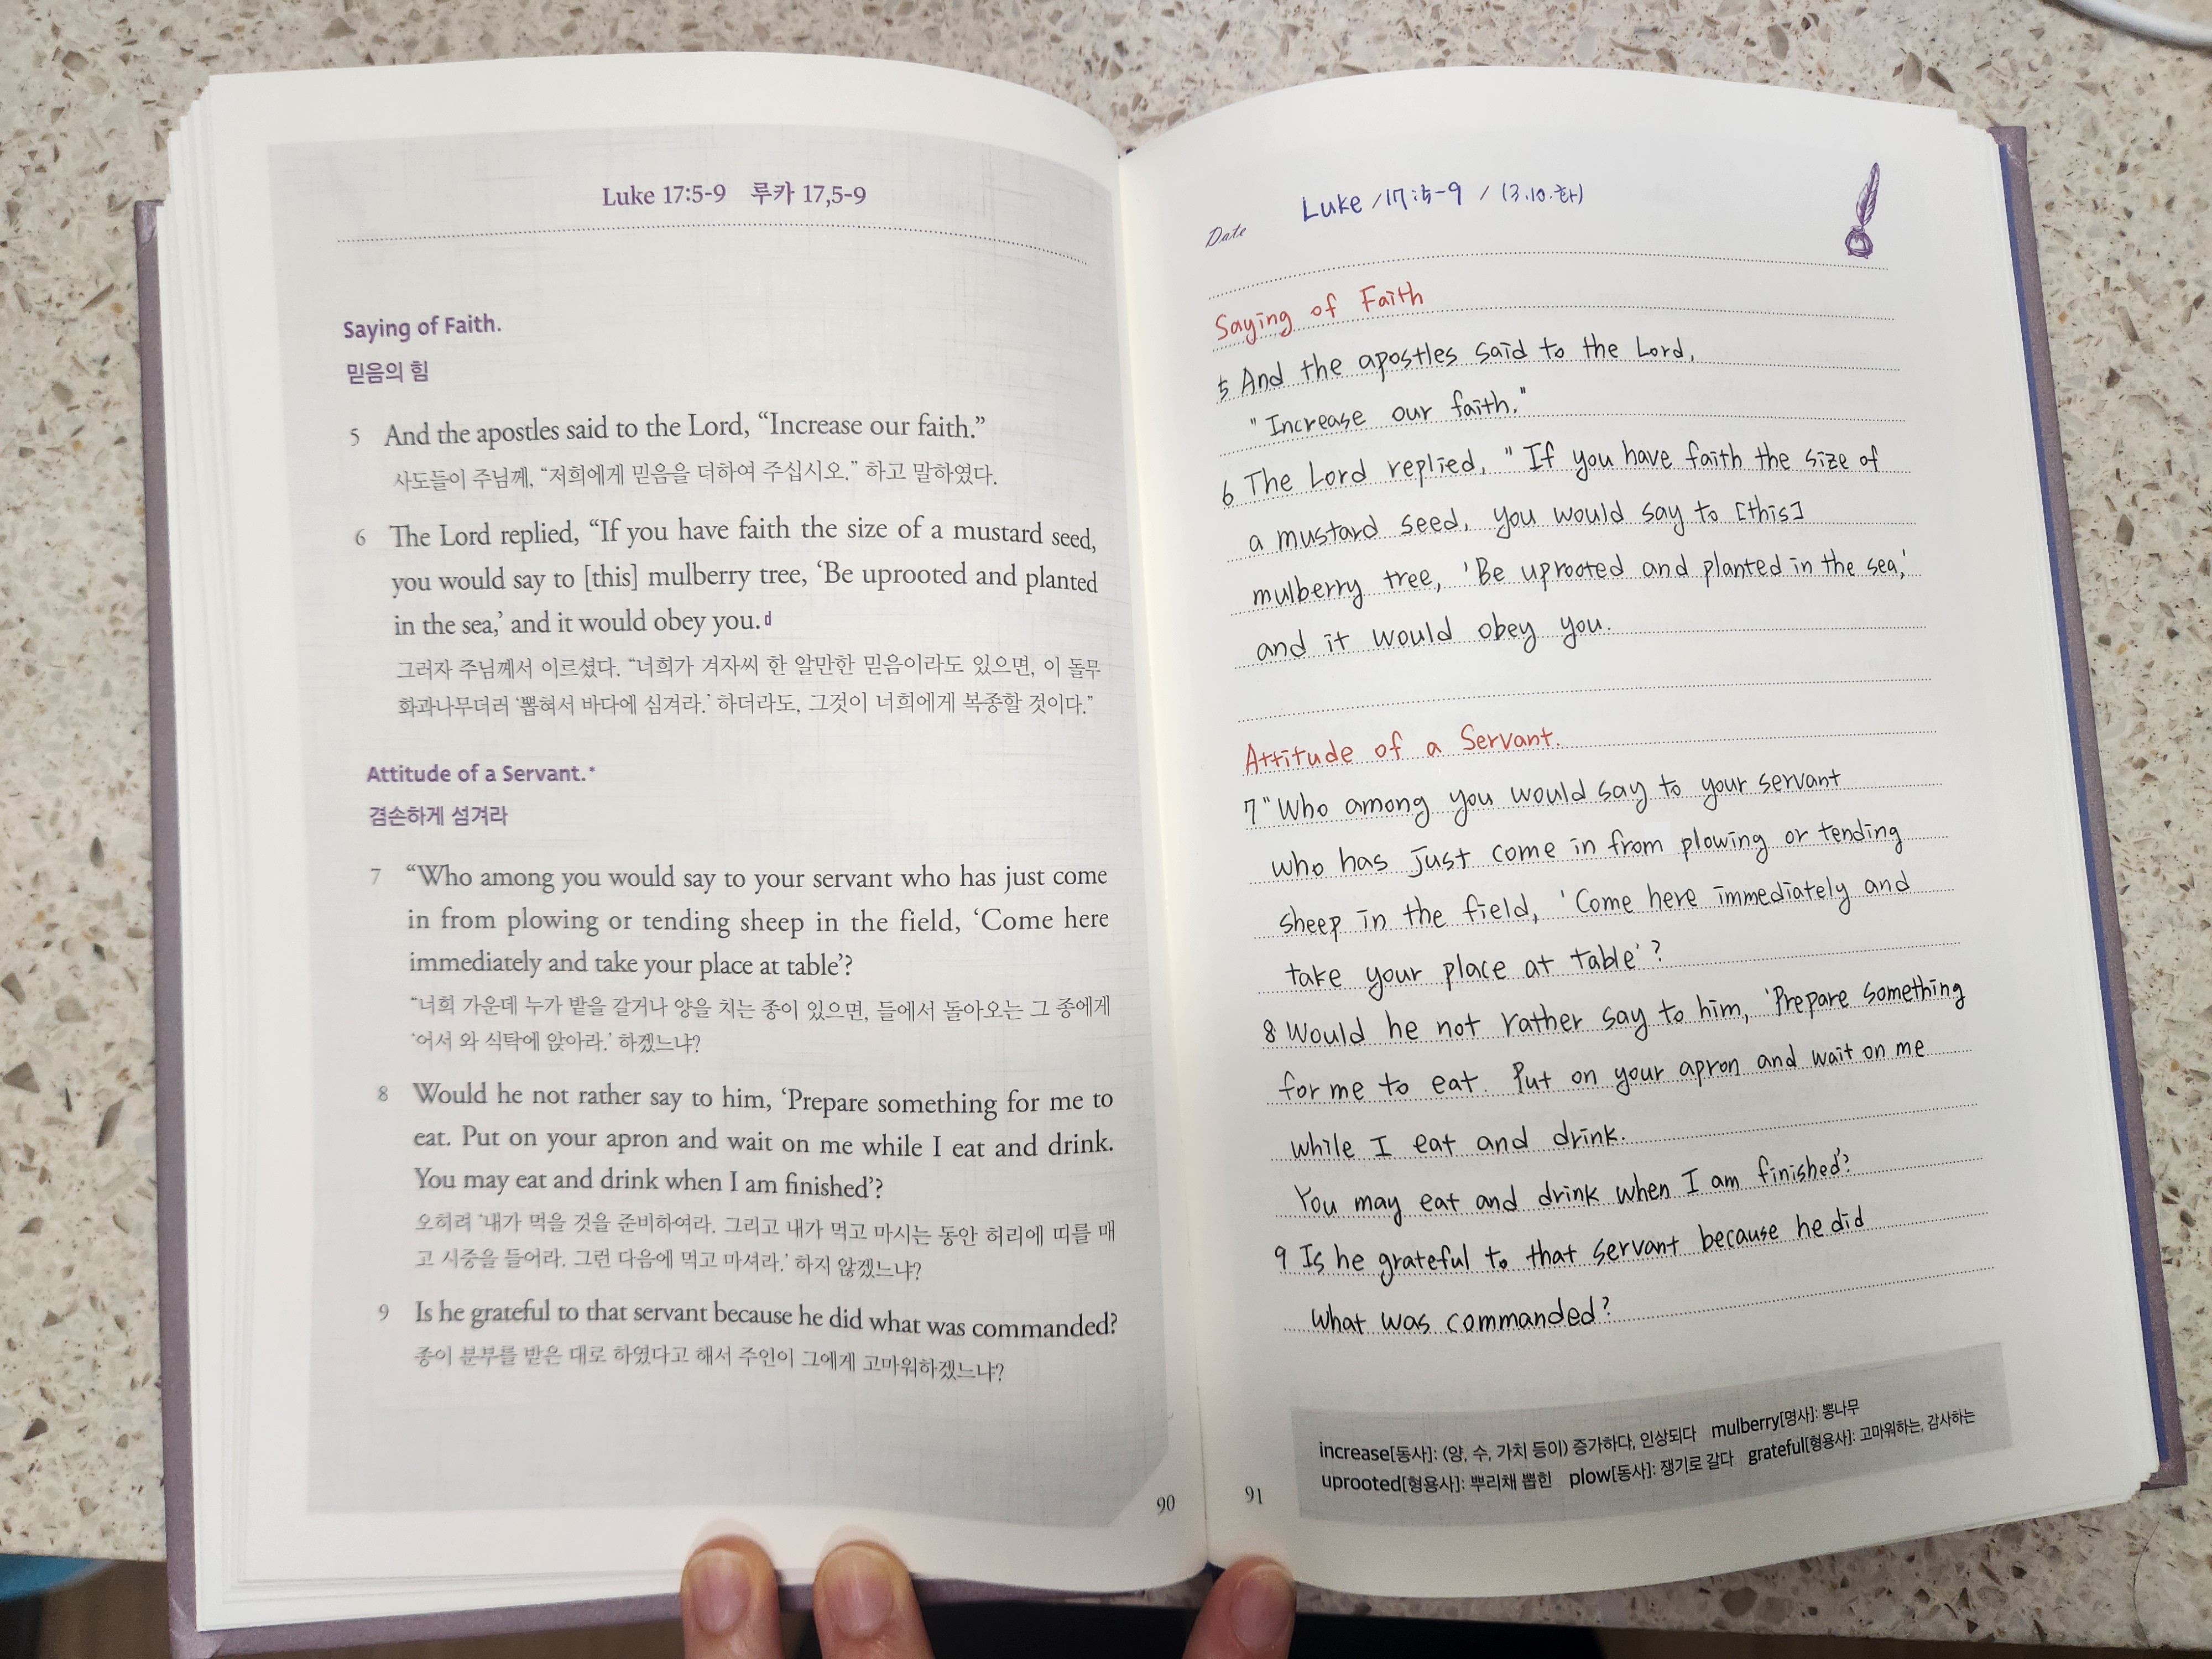 Luke 17:5-9 루카 17,5-9
Saying of Faith.
믿음의 힘
5 And the apostles said to the Lord, “Increase our faith.”
사도들이 주님께, “저희에게 믿음을 더하여 주십시오.” 하고 말하였다.
6 The Lord replied, “If you have faith the size of a mustard seed,
you would say to [this] mulberry tree, ‘Be uprooted and planted
in the sea,’ and it would obey you.d
그러자 주님께서 이르셨다. “너희가 겨자씨 한 알만한 믿음이라도 있으면, 이 돌무
화과나무더러 ‘뽑혀서 바다에 심겨라.’ 하더라도, 그것이 너희에게 복종할 것이다.”
Attitude of a Servant.*
겸손하게 섬겨라
7 “Who among you would say to your servant who has just come
in from plowing or tending sheep in the field, ‘Come here
immediately and take your place at table’?
“너희 가운데 누가 밭을 갈거나 양을 치는 종이 있으면, 들에서 돌아오는 그 종에게
‘어서 와 식탁에 앉아라.’ 하겠느냐?
8 Would he not rather say to him, ‘Prepare something for me to
eat. Put on your apron and wait on me while I eat and drink.
You may eat and drink when I am finished’?
오히려 ‘내가 먹을 것을 준비하여라. 그리고 내가 먹고 마시는 동안 허리에 띠를 매
고 시중을 들어라. 그런 다음에 먹고 마셔라.’ 하지 않겠느냐?
9 Is he grateful to that servant because he did what was commanded?
종이 분부를 받은 대로 하였다고 해서 주인이 그에게 고마워하겠느냐?
90
Date Luke /17:5-9 / (3.10.화)
Saying of Faith
5 And the apostles said to the Lord,
"Increase our faith."
6 The Lord replied, "If you have faith the size of
a mustard seed, you would say to [this]
mulberry tree, 'Be uprooted and planted in the sea,'
and it would obey you.
Attitude of a Servant.
7 "Who among you would say to your servant
who has just come in from plowing or tending
sheep in the field, 'Come here immediately and
take your place at table'?
8 Would he not rather say to him, 'Prepare something
for me to eat. Put on your apron and wait on me
while I eat and drink.
You may eat and drink when I am finished'?
9 Is he grateful to that servant because he did
what was commanded?
increase[동사]: (양, 수, 가치 등이) 증가하다, 인상되다 mulberry[명사]: 뽕나무
uprooted[형용사]: 뿌리채 뽑힌 plow[동사]: 쟁기로 갈다 grateful[형용사]: 고마워하는, 감사하는
91